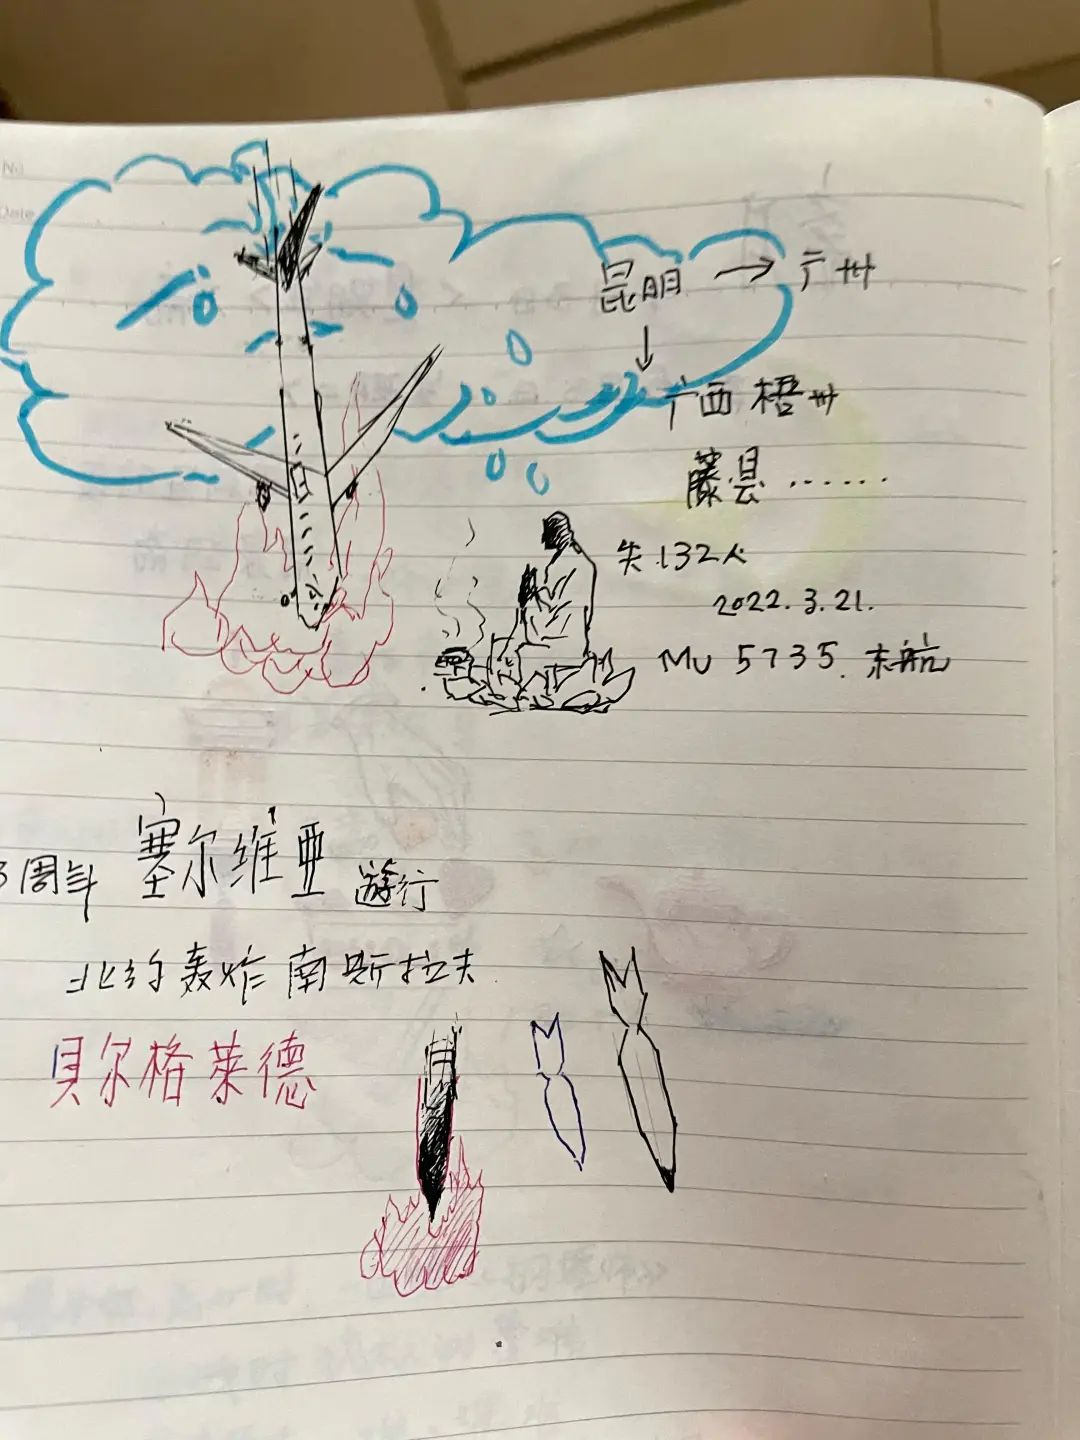 No.
Date
昆明 → 广州
↓
广西梧州
藤县……
失132人
2022.3.21.
MU 5735. 东航
3周年 塞尔维亚 遊行
北约轰炸南斯拉夫
贝尔格莱德